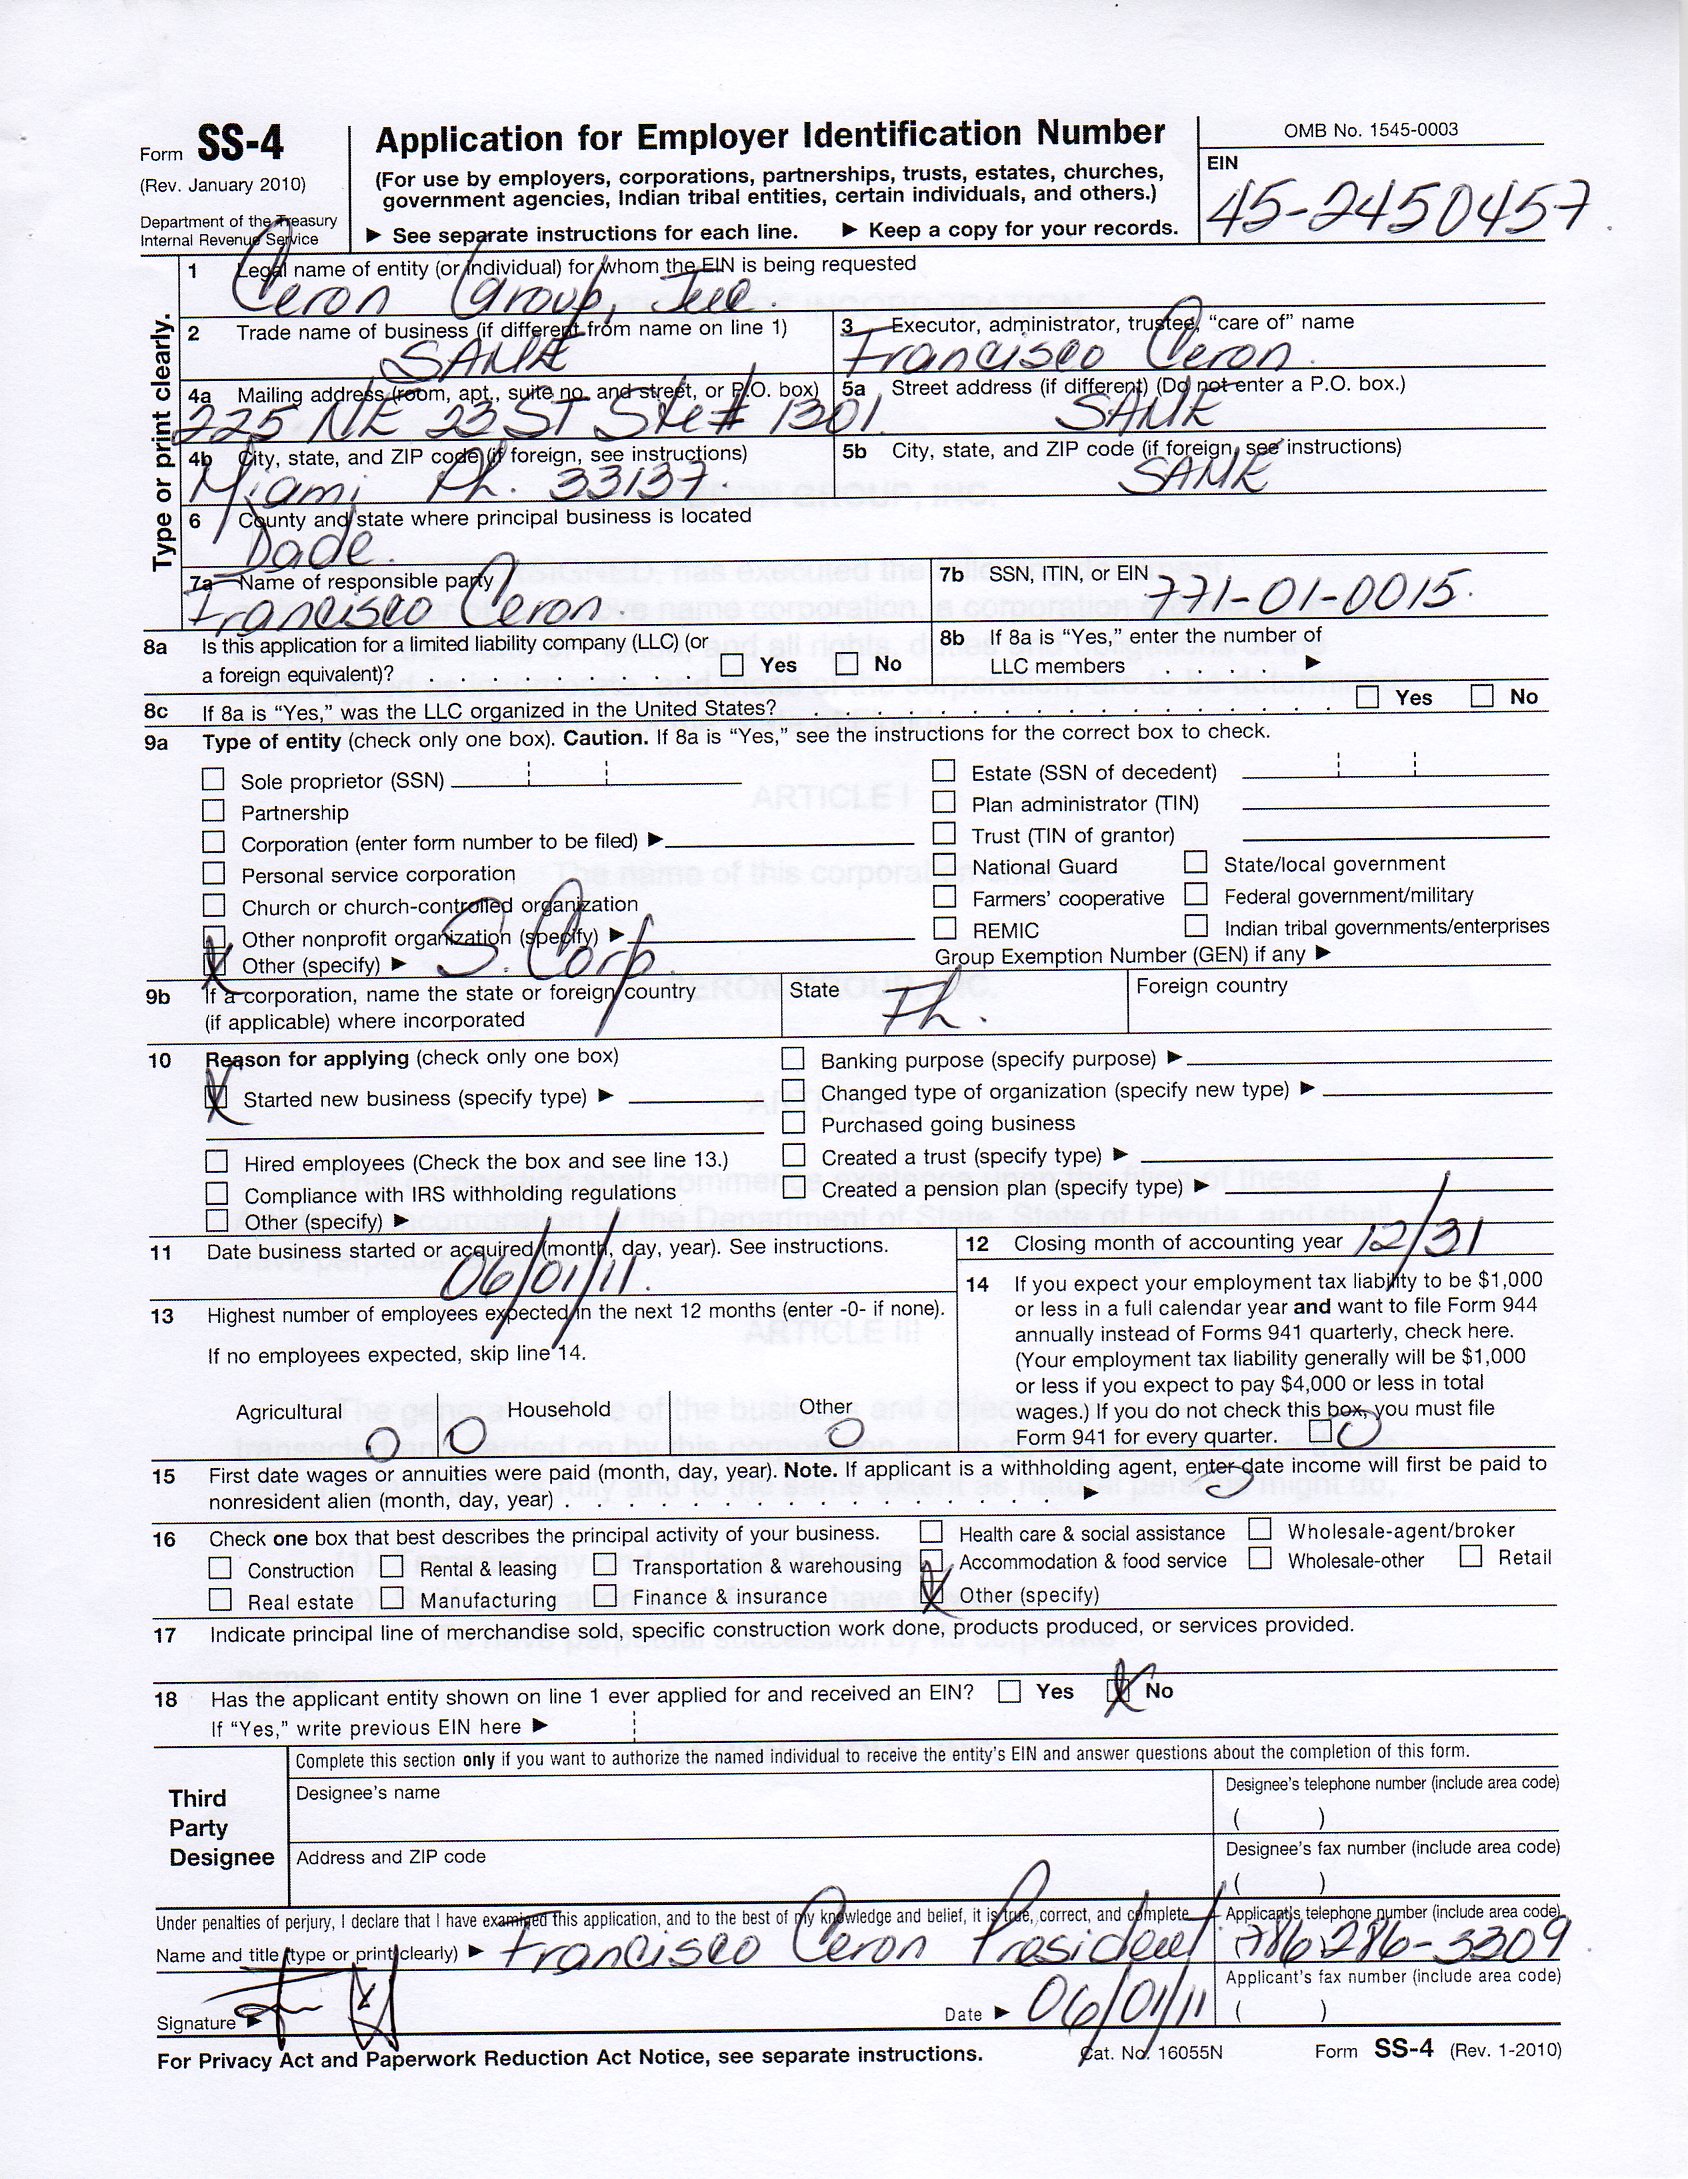 Form SS-4
(Rev. January 2010)
Department of the Treasury
Internal Revenue Service
Application for Employer Identification Number
(For use by employers, corporations, partnerships, trusts, estates, churches,
government agencies, Indian tribal entities, certain individuals, and others.)
▶ See separate instructions for each line. ▶ Keep a copy for your records.
OMB No. 1545-0003
EIN
45-2450457
Type or print clearly.
1 Legal name of entity (or individual) for whom the EIN is being requested
Ceron Group, Inc.
2 Trade name of business (if different from name on line 1)
SAME
3 Executor, administrator, trustee, “care of” name
Francisco Ceron.
4a Mailing address (room, apt., suite no. and street, or P.O. box)
225 NE 23 ST Ste # 1301
5a Street address (if different) (Do not enter a P.O. box.)
SAME
4b City, state, and ZIP code (if foreign, see instructions)
Miami Fl. 33137.
5b City, state, and ZIP code (if foreign, see instructions)
SAME
6 County and state where principal business is located
Dade.
7a Name of responsible party
Francisco Ceron.
7b SSN, ITIN, or EIN 771-01-0015.
8a Is this application for a limited liability company (LLC) (or
a foreign equivalent)? . . . . . . . . . Yes No
8b If 8a is “Yes,” enter the number of
LLC members . . . . ▶
8c If 8a is “Yes,” was the LLC organized in the United States? . . . . . . . . . . . . . . . . . Yes No
9a Type of entity (check only one box). Caution. If 8a is “Yes,” see the instructions for the correct box to check.
Sole proprietor (SSN)
Partnership
Corporation (enter form number to be filed) ▶
Personal service corporation
Church or church-controlled organization
Other nonprofit organization (specify) ▶
Other (specify) ▶ S. Corp.
Estate (SSN of decedent)
Plan administrator (TIN)
Trust (TIN of grantor)
National Guard State/local government
Farmers’ cooperative Federal government/military
REMIC Indian tribal governments/enterprises
Group Exemption Number (GEN) if any ▶
9b If a corporation, name the state or foreign country
(if applicable) where incorporated
State Fl.
Foreign country
10 Reason for applying (check only one box)
Started new business (specify type) ▶
Hired employees (Check the box and see line 13.)
Compliance with IRS withholding regulations
Other (specify) ▶
Banking purpose (specify purpose) ▶
Changed type of organization (specify new type) ▶
Purchased going business
Created a trust (specify type) ▶
Created a pension plan (specify type) ▶
11 Date business started or acquired (month, day, year). See instructions.
06/01/11.
12 Closing month of accounting year 12/31
13 Highest number of employees expected in the next 12 months (enter -0- if none).
If no employees expected, skip line 14.
Agricultural Household Other
0 0 0
14 If you expect your employment tax liability to be $1,000
or less in a full calendar year and want to file Form 944
annually instead of Forms 941 quarterly, check here.
(Your employment tax liability generally will be $1,000
or less if you expect to pay $4,000 or less in total
wages.) If you do not check this box, you must file
Form 941 for every quarter. 0
15 First date wages or annuities were paid (month, day, year). Note. If applicant is a withholding agent, enter date income will first be paid to
nonresident alien (month, day, year) . . . . . . . . . . . . . . . . . ▶ 0
16 Check one box that best describes the principal activity of your business.
Health care & social assistance Wholesale-agent/broker
Construction Rental & leasing Transportation & warehousing Accommodation & food service Wholesale-other Retail
Real estate Manufacturing Finance & insurance Other (specify)
17 Indicate principal line of merchandise sold, specific construction work done, products produced, or services provided.
18 Has the applicant entity shown on line 1 ever applied for and received an EIN? Yes No
If “Yes,” write previous EIN here ▶
Third
Party
Designee
Complete this section only if you want to authorize the named individual to receive the entity’s EIN and answer questions about the completion of this form.
Designee’s name
Designee’s telephone number (include area code)
( )
Address and ZIP code
Designee’s fax number (include area code)
( )
Under penalties of perjury, I declare that I have examined this application, and to the best of my knowledge and belief, it is true, correct, and complete.
Applicant’s telephone number (include area code)
Name and title (type or print clearly) ▶ Francisco Ceron President
786 286-3309
Applicant’s fax number (include area code)
( )
Signature ▶
Date ▶ 06/01/11
For Privacy Act and Paperwork Reduction Act Notice, see separate instructions.
Cat. No. 16055N
Form SS-4 (Rev. 1-2010)